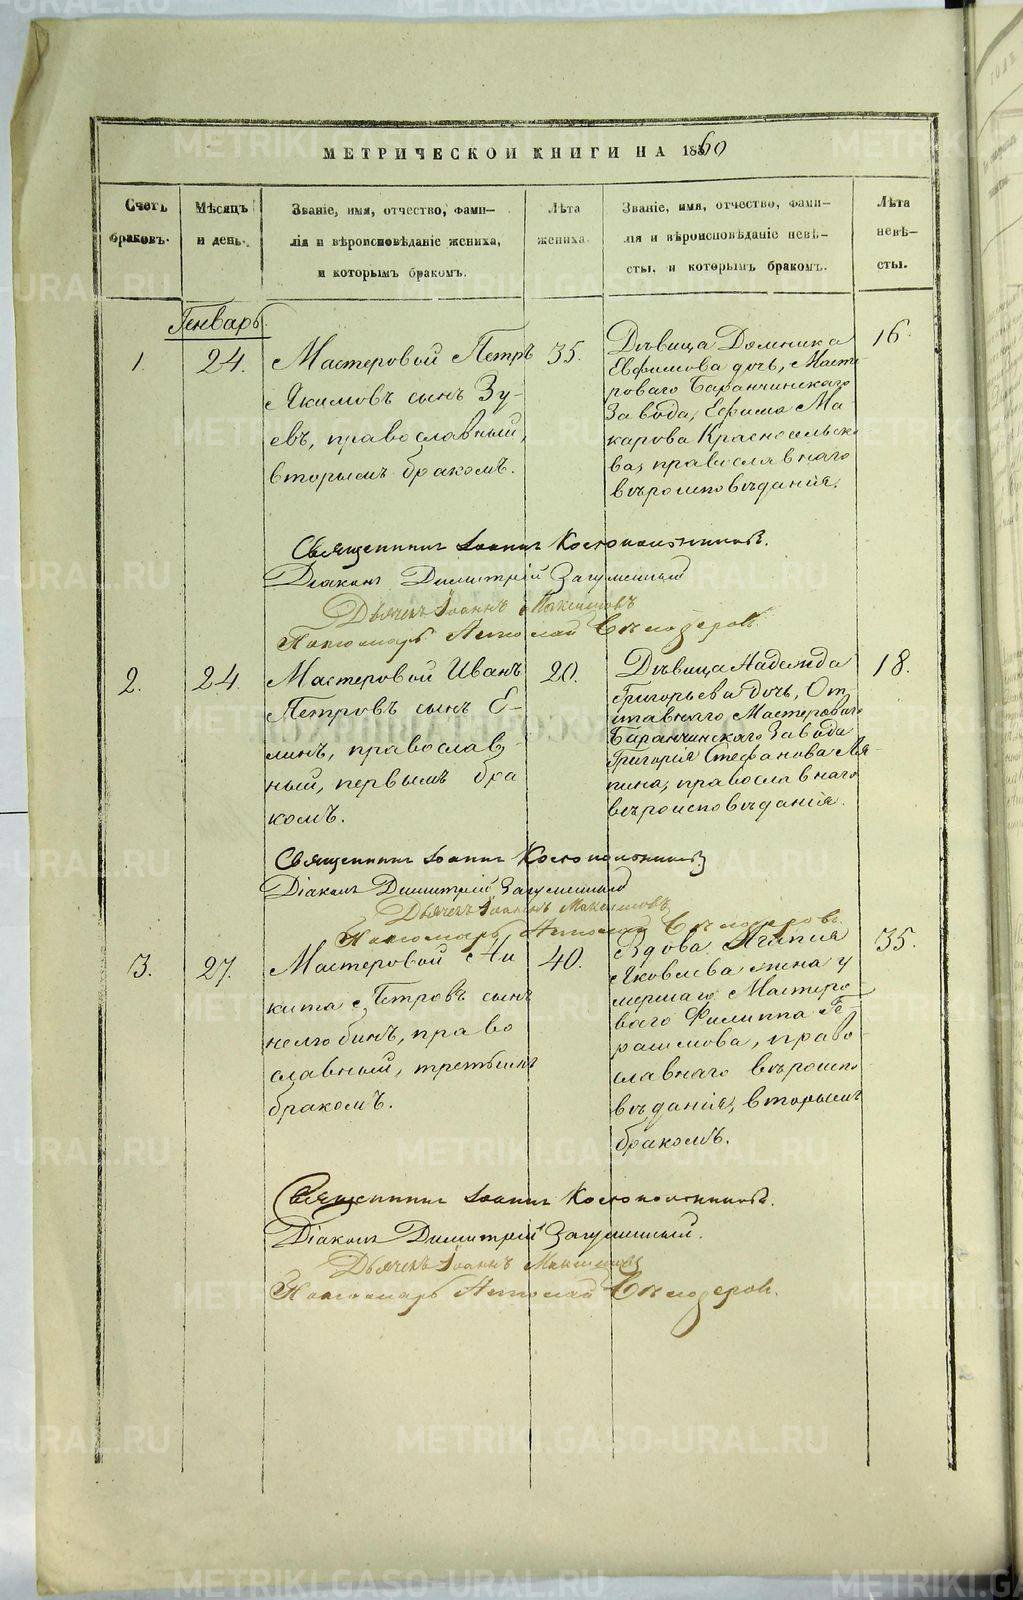 МЕТРИЧЕСКОЙ КНИГИ НА 1860
Счетъ
браковъ.
Мѣсяцъ
и день.
Званіе, имя, отчество, фами-
лія и вѣроисповѣданіе жениха,
и которымъ бракомъ.
Лѣта
жениха.
Званіе, имя, отчество, фами-
лія и вѣроисповѣданіе невѣ-
сты, и которымъ бракомъ.
Лѣта
невѣ-
сты.
Генварь.
1.
24.
Мастеровой Петръ
Якимовъ сынъ Зу-
евъ, православный,
вторымъ бракомъ.
35.
Дѣвица Домника
Евфимова дочь, Масте
роваго Баранчинскаго
Завода, Ефима Ма-
карова Красносельско
ва, православнаго
вѣроисповѣданія.
16.
Священникъ Іоаннъ
Діаконъ Димитрій Загуменный
Дьячекъ Іоаннъ Максимовъ
Пономарь
2.
24.
Мастеровой Иванъ
Петровъ сынъ Е-
линъ, православ-
ный, первымъ бра
комъ.
20.
Дѣвица Надежда
Григорьева дочь, От
ставнаго Мастероваго
Баранчинскаго Завода
Григорія Стефанова Ля-
пина, православнаго
вѣроисповѣданія.
18.
Священникъ Іоаннъ
Діаконъ Димитрій Загуменный
Дьячекъ Іоаннъ Максимовъ
Пономарь
3.
27.
Мастеровой Ни
кита Петровъ сынъ
право
славный, третьимъ
бракомъ.
40.
Вдова
Яковлева жена у
мершаго Мастеро
ваго Филиппа Ге-
расимова, право
славнаго вѣроиспо
вѣданія, вторымъ
бракомъ.
35.
Священникъ Іоаннъ
Діаконъ Димитрій Загуменный.
Дьячекъ Іоаннъ Максимовъ
Пономарь
METRIKI.GASO-URAL.RU